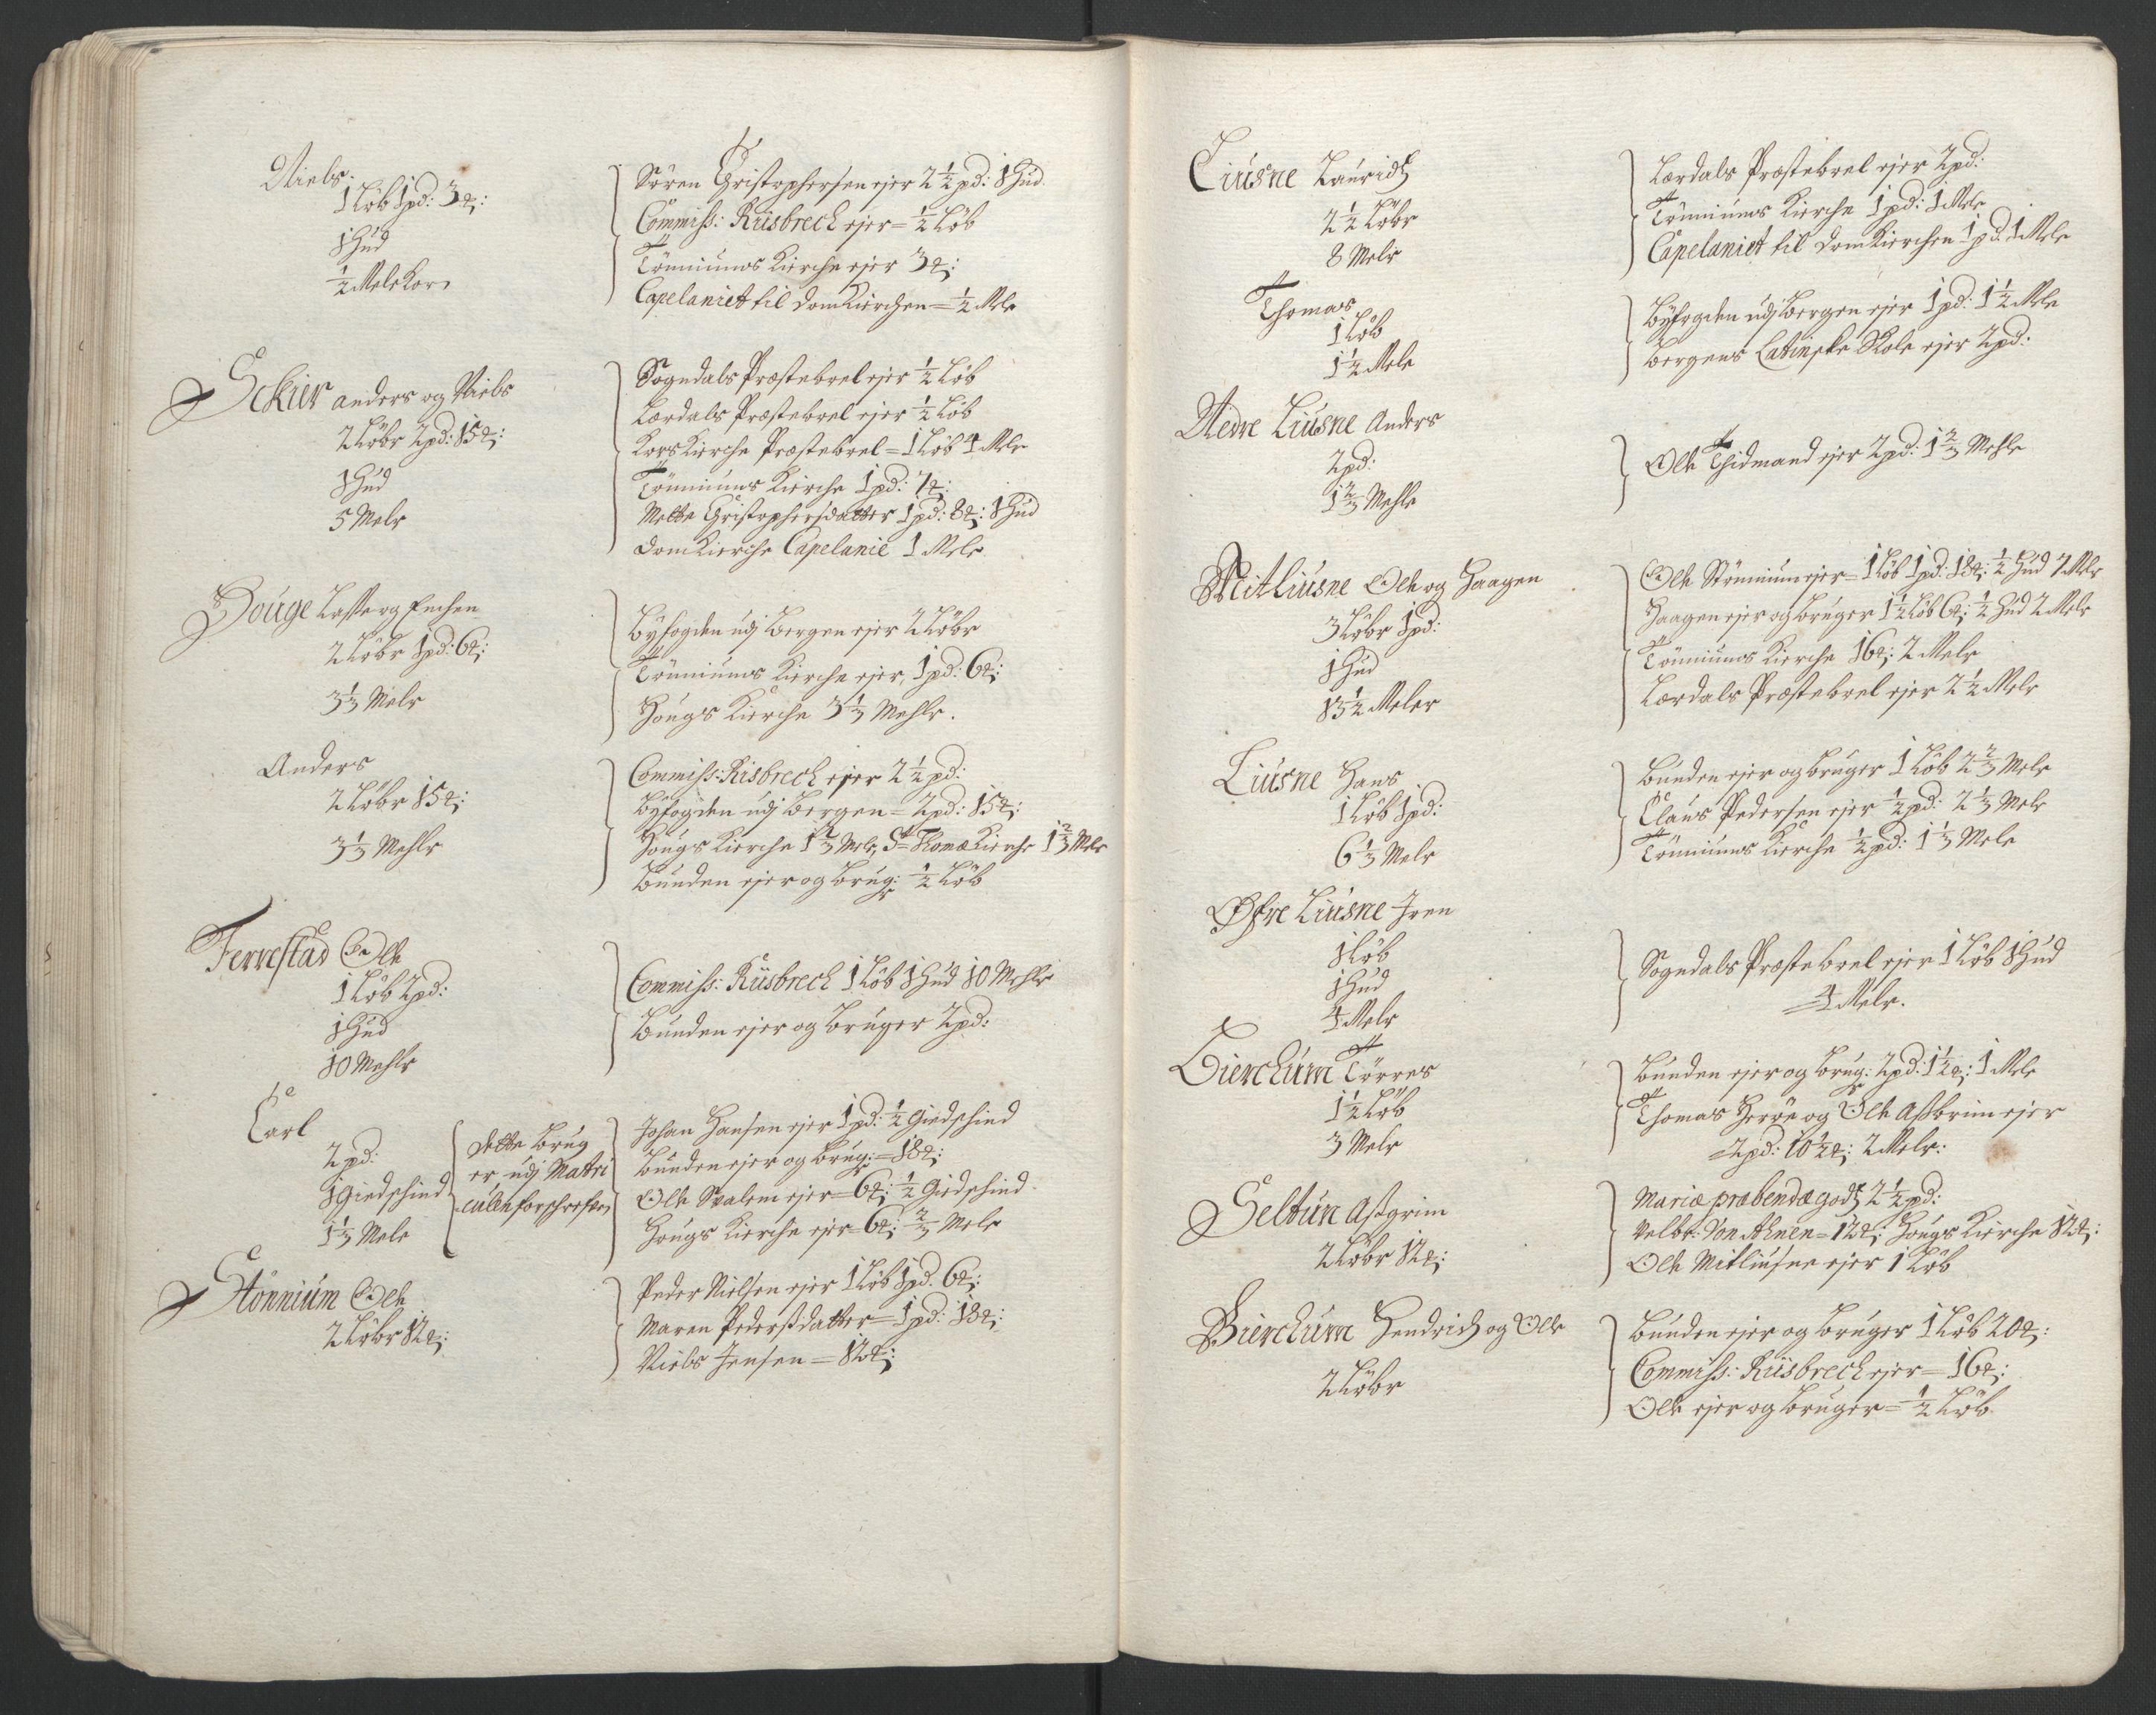 Niels.
1 Løb 1 pd: 3 ℔:
1 Hud
½ Mele Korn
Søren Christophersen ejer 2½ pd: 1 Hud
Commiss: Riisbrech ejer = ½ Løb
Tönniums Kierche ejer 3 ℔:
Capelaniet til Domkierchen = ½ Mele
Schier Anders og Niels
2 Løbr 2 pd: 15 ℔:
1 Hud
5 Melr
Sogndals Præstebrel ejer ½ Løb
Lærdals Præstebrel ejer ½ Løb
Kors Kierche Præstebrel = 1 Løb 4 Mele
Tönniums Kierche 1 pd: 7 ℔:
Mette Christophersdatter 1 pd: 8 ℔: 1 Hud
Domkierche Capelanie 1 Mele
Houge Lasse og
2 Løbr 1 pd: 6 ℔:
3⅓ Melr
Byfogden udj Bergen ejer 2 Løbr
Tönniums Kierche ejer, 1 pd: 6 ℔:
Hougs Kierche 3⅓ Mehlr.
Anders
2 Løbr 15 ℔:
3⅓ Mehlr
Commiss: Risbrech ejer 2½ pd:
Byfogden udj Bergen = 2 pd: 15 ℔:
Hougs Kierche 1⅔ Mele, St Thomæ Kierche 1⅔ Mele
Bunden ejer og brug: ½ Løb
Ferrestad Ole
1 Løb 2 pd:
1 Hud
10 Mehlr
Commiss: Riisbrech 1 Løb 1 Hud 10 Mehlr
Bunden ejer og bruger 2 pd:
Carl
2 pd:
1 Giedschind
1⅓ Mele
dette brug
er udj Matri
culen forschrefven
Johan Hansen ejer 1 pd: ½ Giedschind
Bunden ejer og brug: = 18 ℔:
Ole Svalem ejer = 6 ℔: ½ Giedschind
Hougs Kierche ejer = 6 ℔: ⅔ Mele
Stönnium Ole
2 Løbr 12 ℔:
Peder Nielsen ejer 1 Løb 1 pd. 6 ℔:
Maren Pederßdatter = 1 pd: 18 ℔:
Niels Jensen = 12 ℔:
Liusne Lauridz
2½ Løbr
8 Melr
Lærdals Præstebrel ejer 2 pd:
Tönniums Kierche 1 pd: 1 Mele
Capelaniet til Domkierchen 1 pd. 1 Mele
Thomas
1 Løb
1½ Mele
Byfogden udj Bergen ejer 1 pd: 1½ Mele
Bergens Latinske Skole ejer 2 pd:
Nedre Liusne Anders
2 pd:
1⅔ Mehle
Ole Thidmand ejer 2 pd: 1⅔ Mehle
Mitliusne Ole og Haagen
3 Løbr 1 pd:
1 Hud
13½ Meler
Ole Stönnium ejer = 1 Løb 1 pd: 18 ℔: ½ Hud 7 Mele
Haagen ejer og bruger 1½ Løb 6 ℔: ½ Hud 2 Mele
Tönniums Kierche 16 ℔: 2 Mele
Lærdals Præstebrel ejer 2½ Mele
Liusne Hans
1 Løb 1 pd:
6⅓ Melr
Bunden ejer og bruger 1 Løb 2⅔ Mele
Claus Pedersen ejer ½ pd: 2⅓ Mele
Tönniums Kierche ½ pd: 1⅓ Mele
Øfre Liusne Iven
1 Løb
1 Hud
4 Melr
Sogndals Præstebrel ejer 1 Løb 1 Hud
= 4 Melr.
Bierchum Törres
1½ Løb
3 Melr
Bunden ejer og brug: 2 pd: 1½ ℔: 1 Mele
Thomas Herøe og Ole Aßbrim ejer
= 2 pd: 10½ ℔: 2 Melr:
Seltun Aßgrim
2 Løbr 12 ℔:
Mariæ præbendægodz 2½ pd:
Velbr: Von Ahnen = 12 ℔: Hougs Kierche 12 ℔:
Ole Mitliusne ejer 1 Løb
Bierchum Hendrich og Ole
2 Løbr
Bunden ejer og bruger 1 Løb 20 ℔:
Commiss: Riisbrech ejer = 16 ℔:
Ole ejer og bruger = ½ Løb